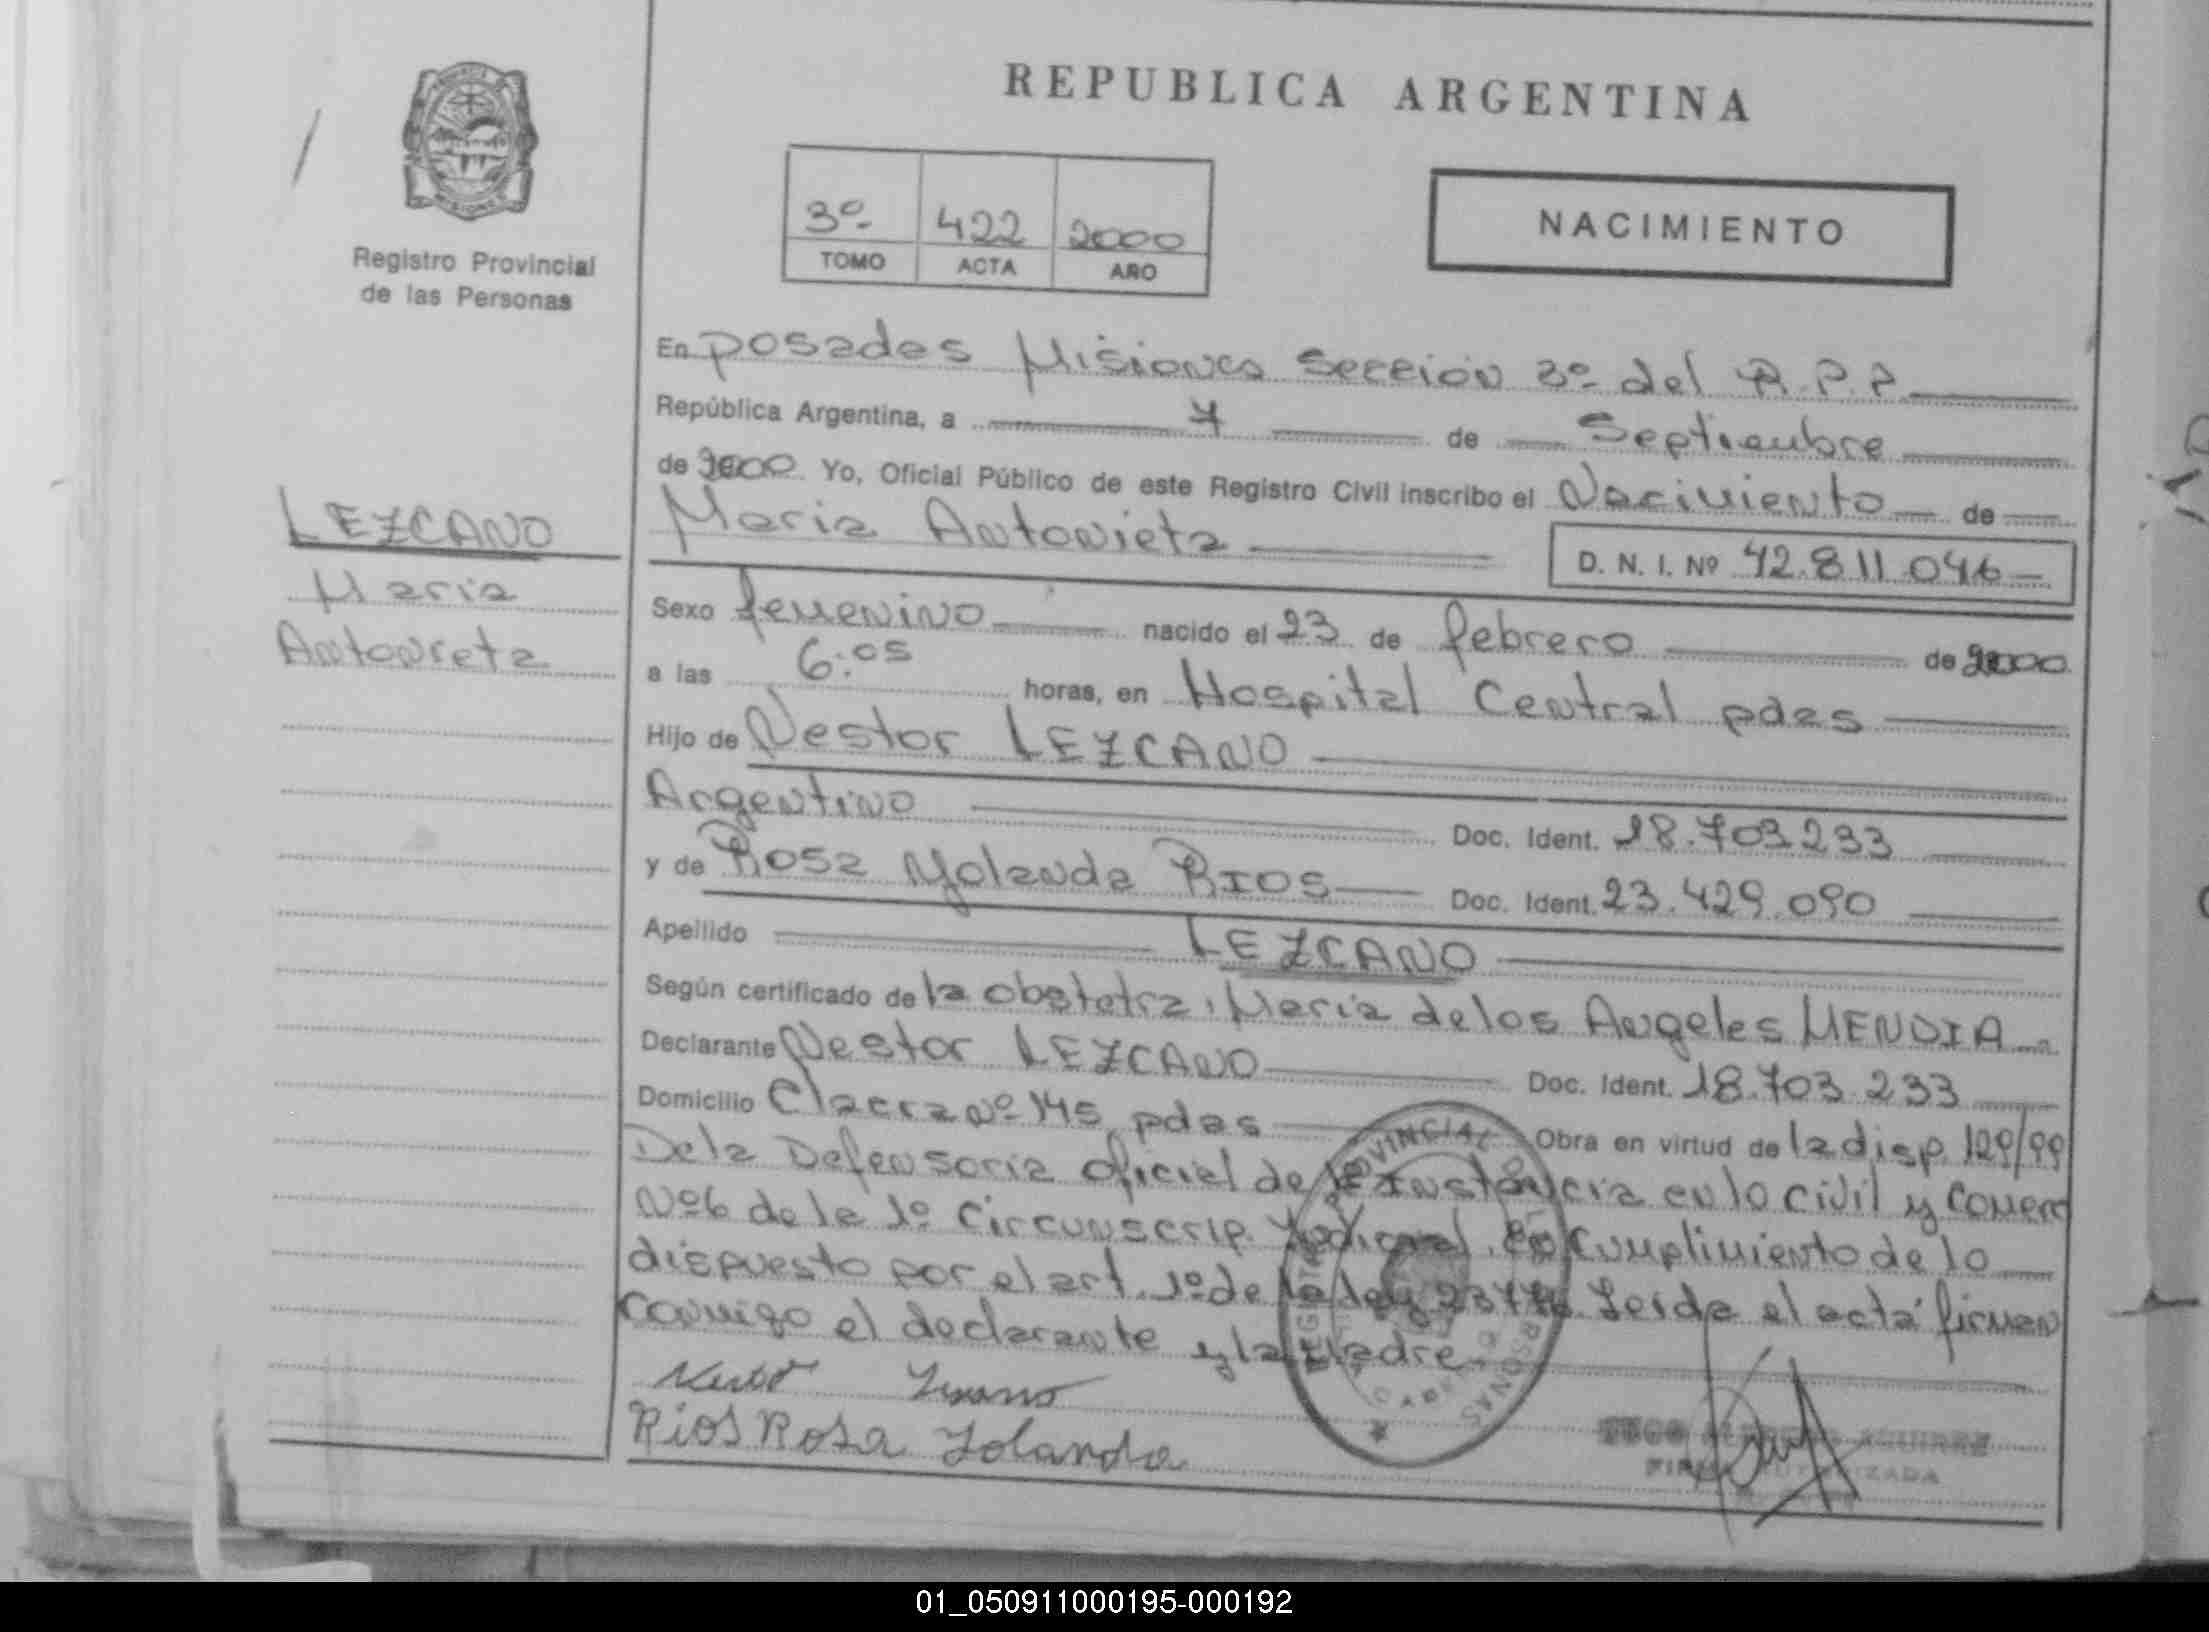 REPUBLICA ARGENTINA
Registro Provincial
de las Personas
3º 422 2000
TOMO ACTA AÑO
NACIMIENTO
LEZCANO
Maria
Antonieta
En posadas Misiones Sección 3º del R.P.P
República Argentina, a 7 de Septiembre
de 2000 Yo, Oficial Público de este Registro Civil inscribo el Nacimiento de
Maria Antonieta D. N. I. Nº 42.811.046
Sexo femenino nacido el 23 de febrero de 2000
a las 6:05 horas, en Hospital Central pdas
Hijo de Nestor LEZCANO
Argentino Doc. Ident. 18.703.233
y de Rosa Yolanda RIOS Doc. Ident. 23.429.090
Apellido LEZCANO
Según certificado de la obstetra, Maria de los Angeles MENDIA
Declarante Nestor LEZCANO Doc. Ident. 18.703.233
Domicilio Chacra Nº 145 pdas Obra en virtud de la disp 129/99
De la Defensoria oficial de Instancia en lo civil y comerc
Nº6 de la 1º Circunscrip. Judicial. En cumplimiento de lo
dispuesto por el art. 1º de la ley Leida el acta firman
conmigo el declarante y la Madre
Rios Rosa Yolanda
AGUIRRE
FIRMA AUTORIZADA
01_050911000195-000192